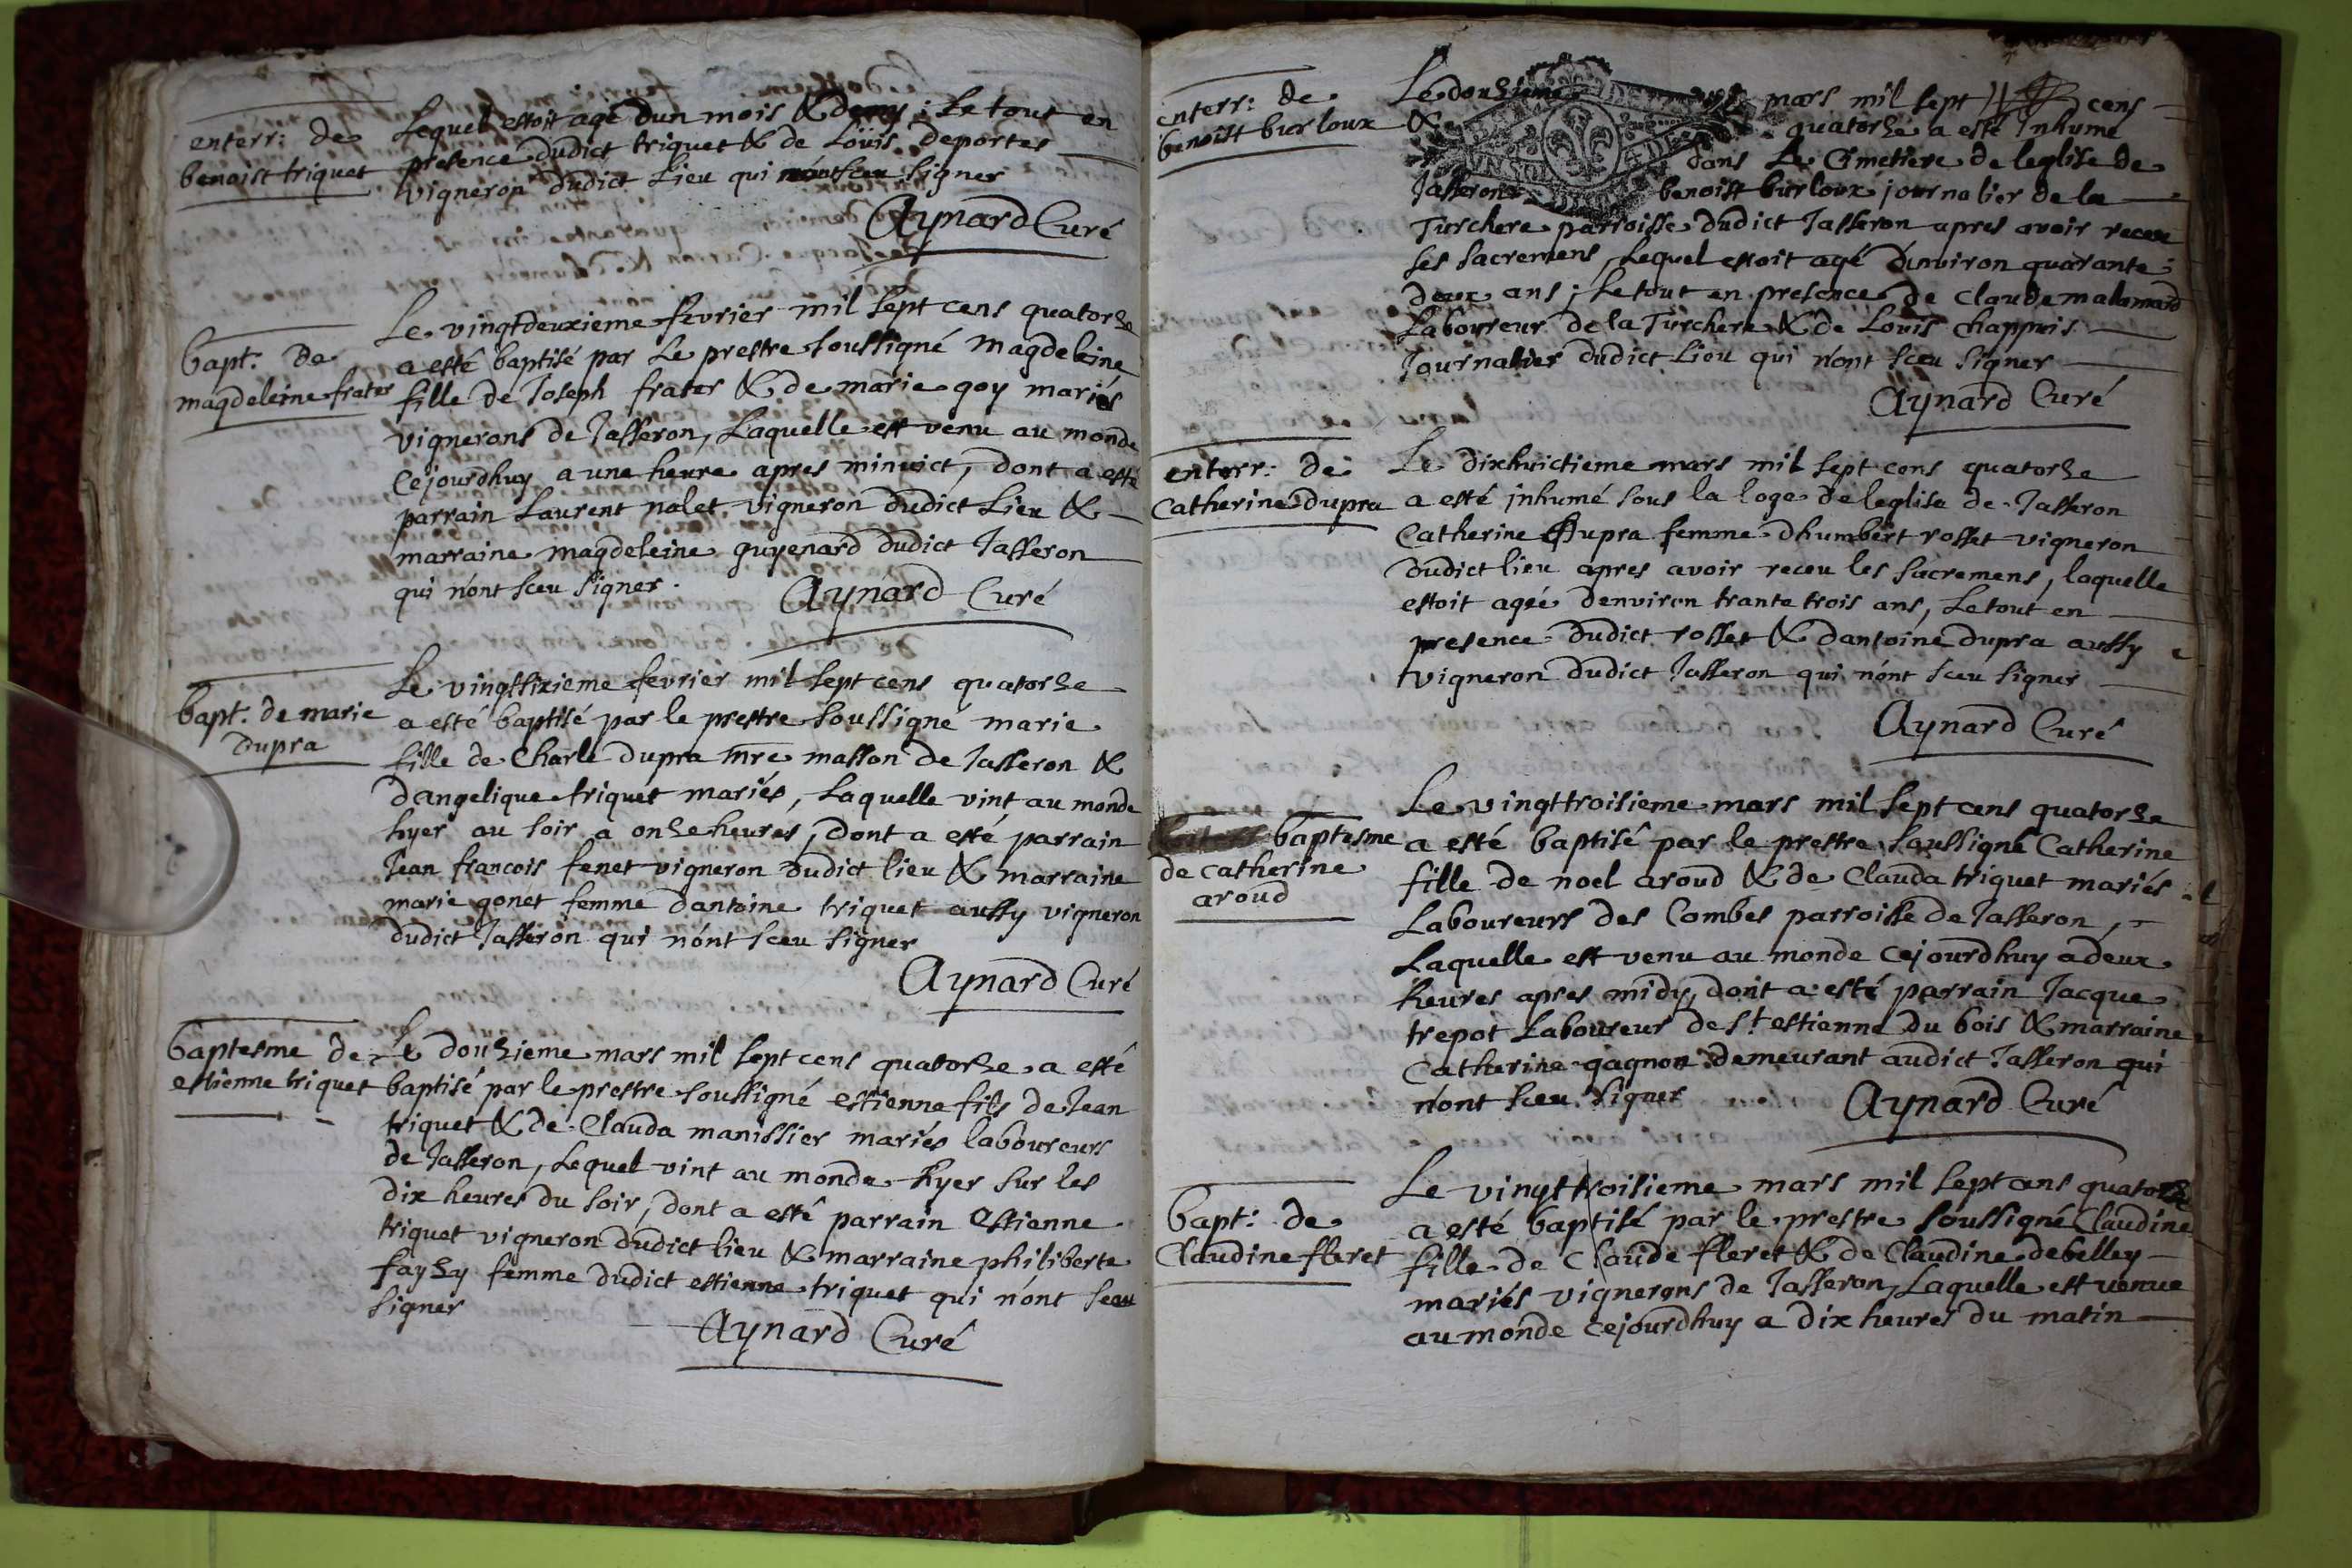 enterr: de
benoist triquet
Lequel estoit agé dun mois & demy ; Le tout en
presence dudict triquet & de Loüis deportes
vigneron dudict Lieu qui nont sceu signer
Aynard Curé
bapt: de
magdeleine frater
Le vingtdeuxieme fevrier mil sept cens quatorze
a esté baptisé par Le prestre soussigné magdeleine
fille de Joseph frater & de marie goy mariés
vignerons de Jasseron, Laquelle est venu au monde
Cejourdhuy a une heure apres minuict, dont a esté
parrain Laurent nalet vigneron dudict Lieu &
marraine magdeleine guyenard dudict Jasseron
qui n'ont sceu signer.
Aynard Curé
bapt. de marie
dupra
Le vingtsixieme fevrier mil sept cens quatorze
a esté baptisé par le prestre soussigné marie
fille de Charle dupra mre masson de Jasseron &
dangelique triquet mariés, Laquelle vint au monde
hyer au soir a onze heures, dont a esté parrain
Jean francois fenet vigneron dudict lieu & marraine
marie gonet femme dantoine triquet aussy vigneron
dudict Jasseron qui n'ont sceu signer
Aynard Curé
baptesme de
estienne triquet
Le douzieme mars mil sept cens quatorze a esté
baptisé par le prestre soussigné estienne fils de Jean
triquet & de Clauda manissier mariés laboureurs
de Jasseron, Lequel vint au monde hyer sur les
dix heures du soir, dont a esté parrain Estienne
triquet vigneron dudict lieu & marraine philiberte
fayzy femme dudict estienne triquet qui n'ont sceu
signer
Aynard Curé
enterr: de
benoist burloux
Le douzieme mars mil sept cens
& quatorze a esté Inhumé
dans Le Cimetiere de leglise de
Jasseron benoist burloux journalier de la
Turchere parroisse dudict Jasseron apres avoir receu
ses sacremens, Lequel estoit agé d'unviron quarante
deux ans ; Le tout en presence de Claude malamard
Laboureur de la Turchere & de Louis Chappuis
Journalier dudict Lieu qui n'ont sceu signer
Aynard Curé
enterr: de
Catherine dupra
Le dixhuictieme mars mil sept cens quatorze
a esté inhumé sous la loge de leglise de Jasseron
Catherine Dupra femme dhumbert rosset vigneron
dudict lieu apres avoir receu les sacremens, laquelle
estoit agée denviron trante trois ans, Le tout en
presence dudict rosset & dantoine dupra aussy
vigneron dudict Jasseron qui n'ont sceu signer
Aynard Curé
baptesme
de catherine
aroud
Le vingttroisieme mars mil sept cens quatorze
a esté baptisé par le prestre soussigné Catherine
fille de noel aroud & de Clauda triquet mariés
Laboureurs des Combes parroisse de Jasseron,
Laquelle est venu au monde cejourdhuy a deux
heures apres midy, dont a esté parrain Jacque
trepot Laboureur de st estienne du bois & marraine
Catherine gagnon demeurant audict Jasseron qui
n'ont sceu signer
Aynard Curé
bapt: de
Claudine fleret
Le vingttroisieme mars mil sept cens quatorze
a esté baptisé par le prestre soussigné Claudine
fille de Claude fleret & de Claudine debelley
mariés vignerons de Jasseron, Laquelle est venue
au monde cejourdhuy a dix heures du matin